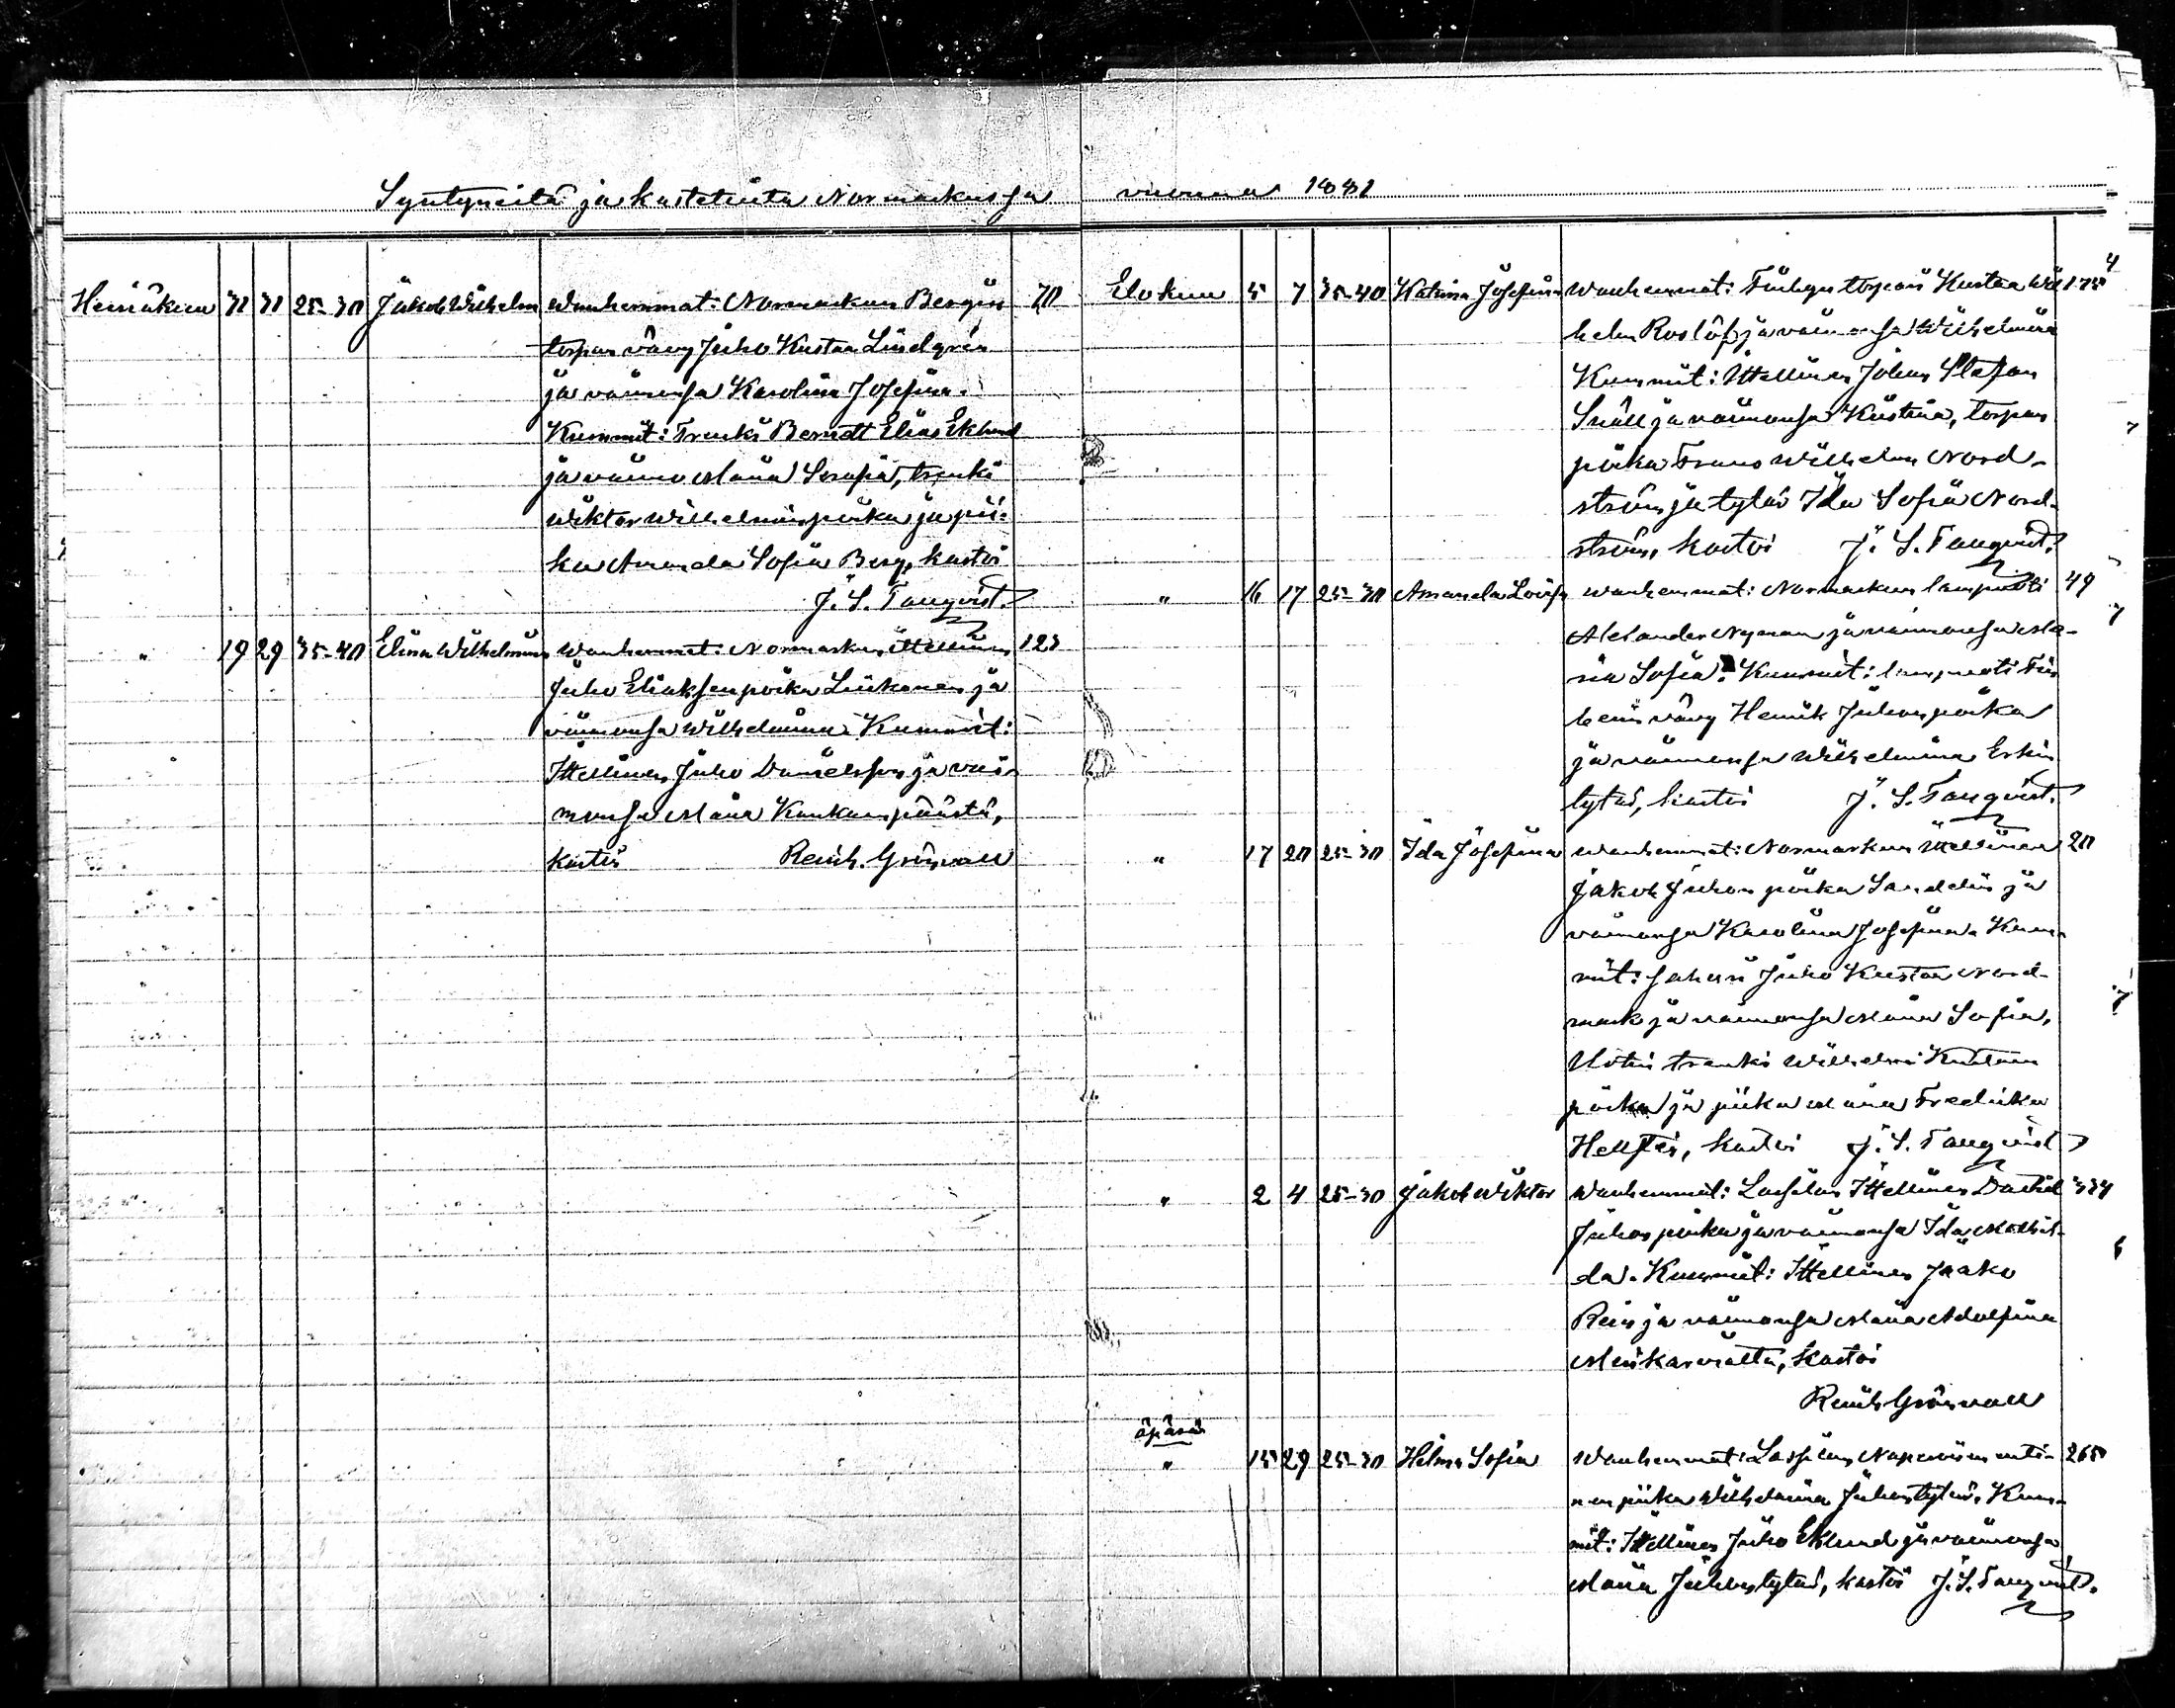 Syntyneitä ja kastetuita Normarkussa vuonna 1881
Heinäkuu 31 31 25-30 Jakob Wilhelm Wanhemmat: Normarkun Bergin 70
torpan vävy Juho Kustaa Lindgrén
ja vaimonsa Karolina Josefina.
Kummit: Trenki Berndt Elias Eklund
ja vaimo Maria Serafia, trenki
Wiktor Wilhelminpoika ja pii-
ka Amanda Sofia Berg, kastoi
J. S. Tanqvist.
" 19 29 35-40 Elina Wilhelmina Wanhemmat: Normarkun ittellinen 123
Juho Eliaksenpoika Linkanen ja
vaimonsa Wilhelmina. Kummit:
Ittellinen Juho Danielsson ja vai-
monsa Maria Kankaanpäästä,
kastoi Reinh. Grönvall
Elokuu 5 7 35-40 Katrina Josefina Wanhemmat: torpari Kustaa Wil- 175
helm Roslöf ja vaimonsa Wilhelmina
Kummit: Ittellinen Johan Stefan
Snäll ja vaimonsa Kristina, torpan
poika Frans Wilhelm Nord-
ström ja tytär Ida Sofia Nord-
ström, kastoi J. S. Tanqvist.
" 16 17 25-30 Amanda Lovisa Wanhemmat: Normarkun lampuoti 49
Alexander Nyman ja vaimonsa Ma-
ria Sofia. Kummit: lampuoti
vävy Henrik Juhonpoika
ja vaimonsa Wilhelmina Erkin
tytär, kastoi J. S. Tanqvist.
" 17 20 25-30 Ida Josefina Wanhemmat: Normarkun Ittellinen 20
Jakob Juhonpoika Sandelin ja
vaimonsa Karolina Josefina. Kum-
mit: Juho Kustaa Nord-
mark ja vaimonsa Maria Sofia,
trenki Wilhelm Kustaan
poika ja piika Maria Fredrika
kastoi J. S. Tanqvist
" 2 4 25-30 Jakob Wiktor Wanhemmat: Lassilan Ittellinen Daniel 334
Juhonpoika ja vaimonsa Ida Mathil-
da. Kummit: Ittellinen Jaako
Rein ja vaimonsa Maria Adolfina
Merikarvialta, kastoi
Reinh Grönvall
äpärä
" 15 29 25-30 Hilma Sofia Wanhemmat: Lassilan enti- 265
nen piika Wilhelmina Juhontytär. Kum-
mit: Ittellinen Juho Eklund ja vaimonsa
Maria Juhontytär, kastoi J. S. Tanqvist.